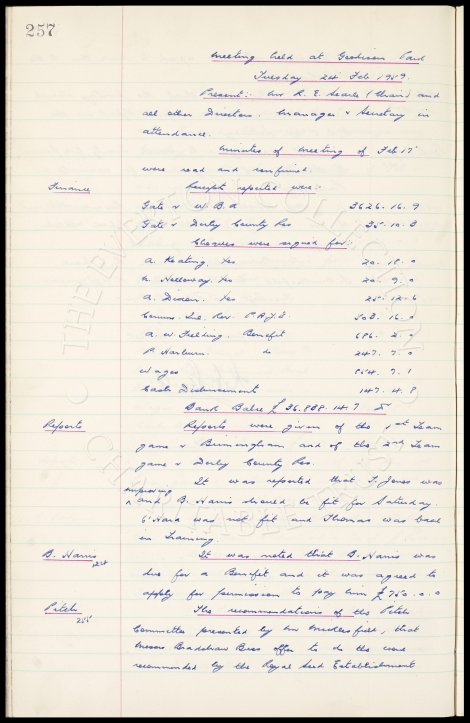 257
Meeting held at Goodison Park
Tuesday 24 Feb 1959.
Present:- Mr R. E. Searle (Chair) and
all other Directors. Manager & Secretary in
attendance.
Minutes of Meeting of Feb 17
were read and confirmed.
Finance Receipts reported were:-
Gate v W.B.A 3626. 16. 9
Gate v Derby County Res 35. 10. 3
Cheques were signed for:-
A. Keating. Yes 20. 18. 0
Holloway. Yes 20. 9. 0
A. Dixon. Yes 25. 12. 6
Comm. Inl. Rev. P.A.Y.E. 508. 16. 0
A. W. Fielding. Benefit 686. 2.
P. Harburn. do 247. 7. 0
Wages 854. 7. 1
Cash Disbursement 147. 4. 8
Bank Balce £36.838. 14. 7
Reports Reports were given of the 1st Team
game v Birmingham and of the 2nd Team
game v Derby County Res.
It was reported that T. Jones was
improving
and B. Harris should be fit for Saturday.
O'Hara was not fit and Thomas was back
in Training.
B. Harris It was noted that B. Harris was
due for a Benefit and it was agreed to
apply for permission to pay him £750. 0. 0
Pitch The recommendations of the Pitch
255
Committee presented by Mr Micklesfield, that
Messrs Bradshaw Bros offer to do the work
recommended by the Royal Seed Establishment
THE EVERTON COLLECTION
CHARITABLE TRUST